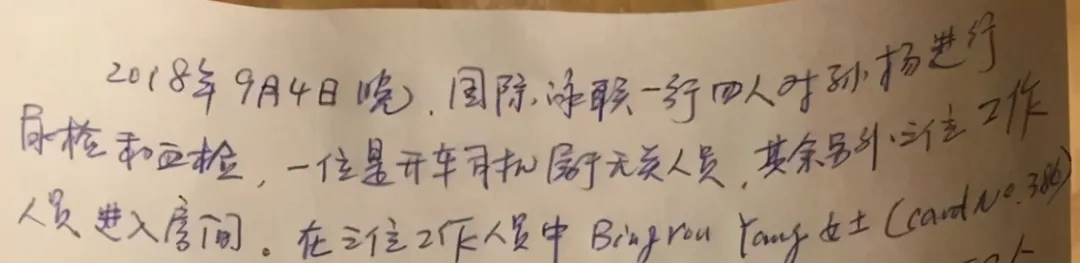 2018年9月4日晚，国际泳联一行四人对孙杨进行
尿检和血检，一位是开车司机属于无关人员，其余另外三位工作
人员进入房间。在三位工作人员中 Bingrou Yang 女士 (card No. 386)